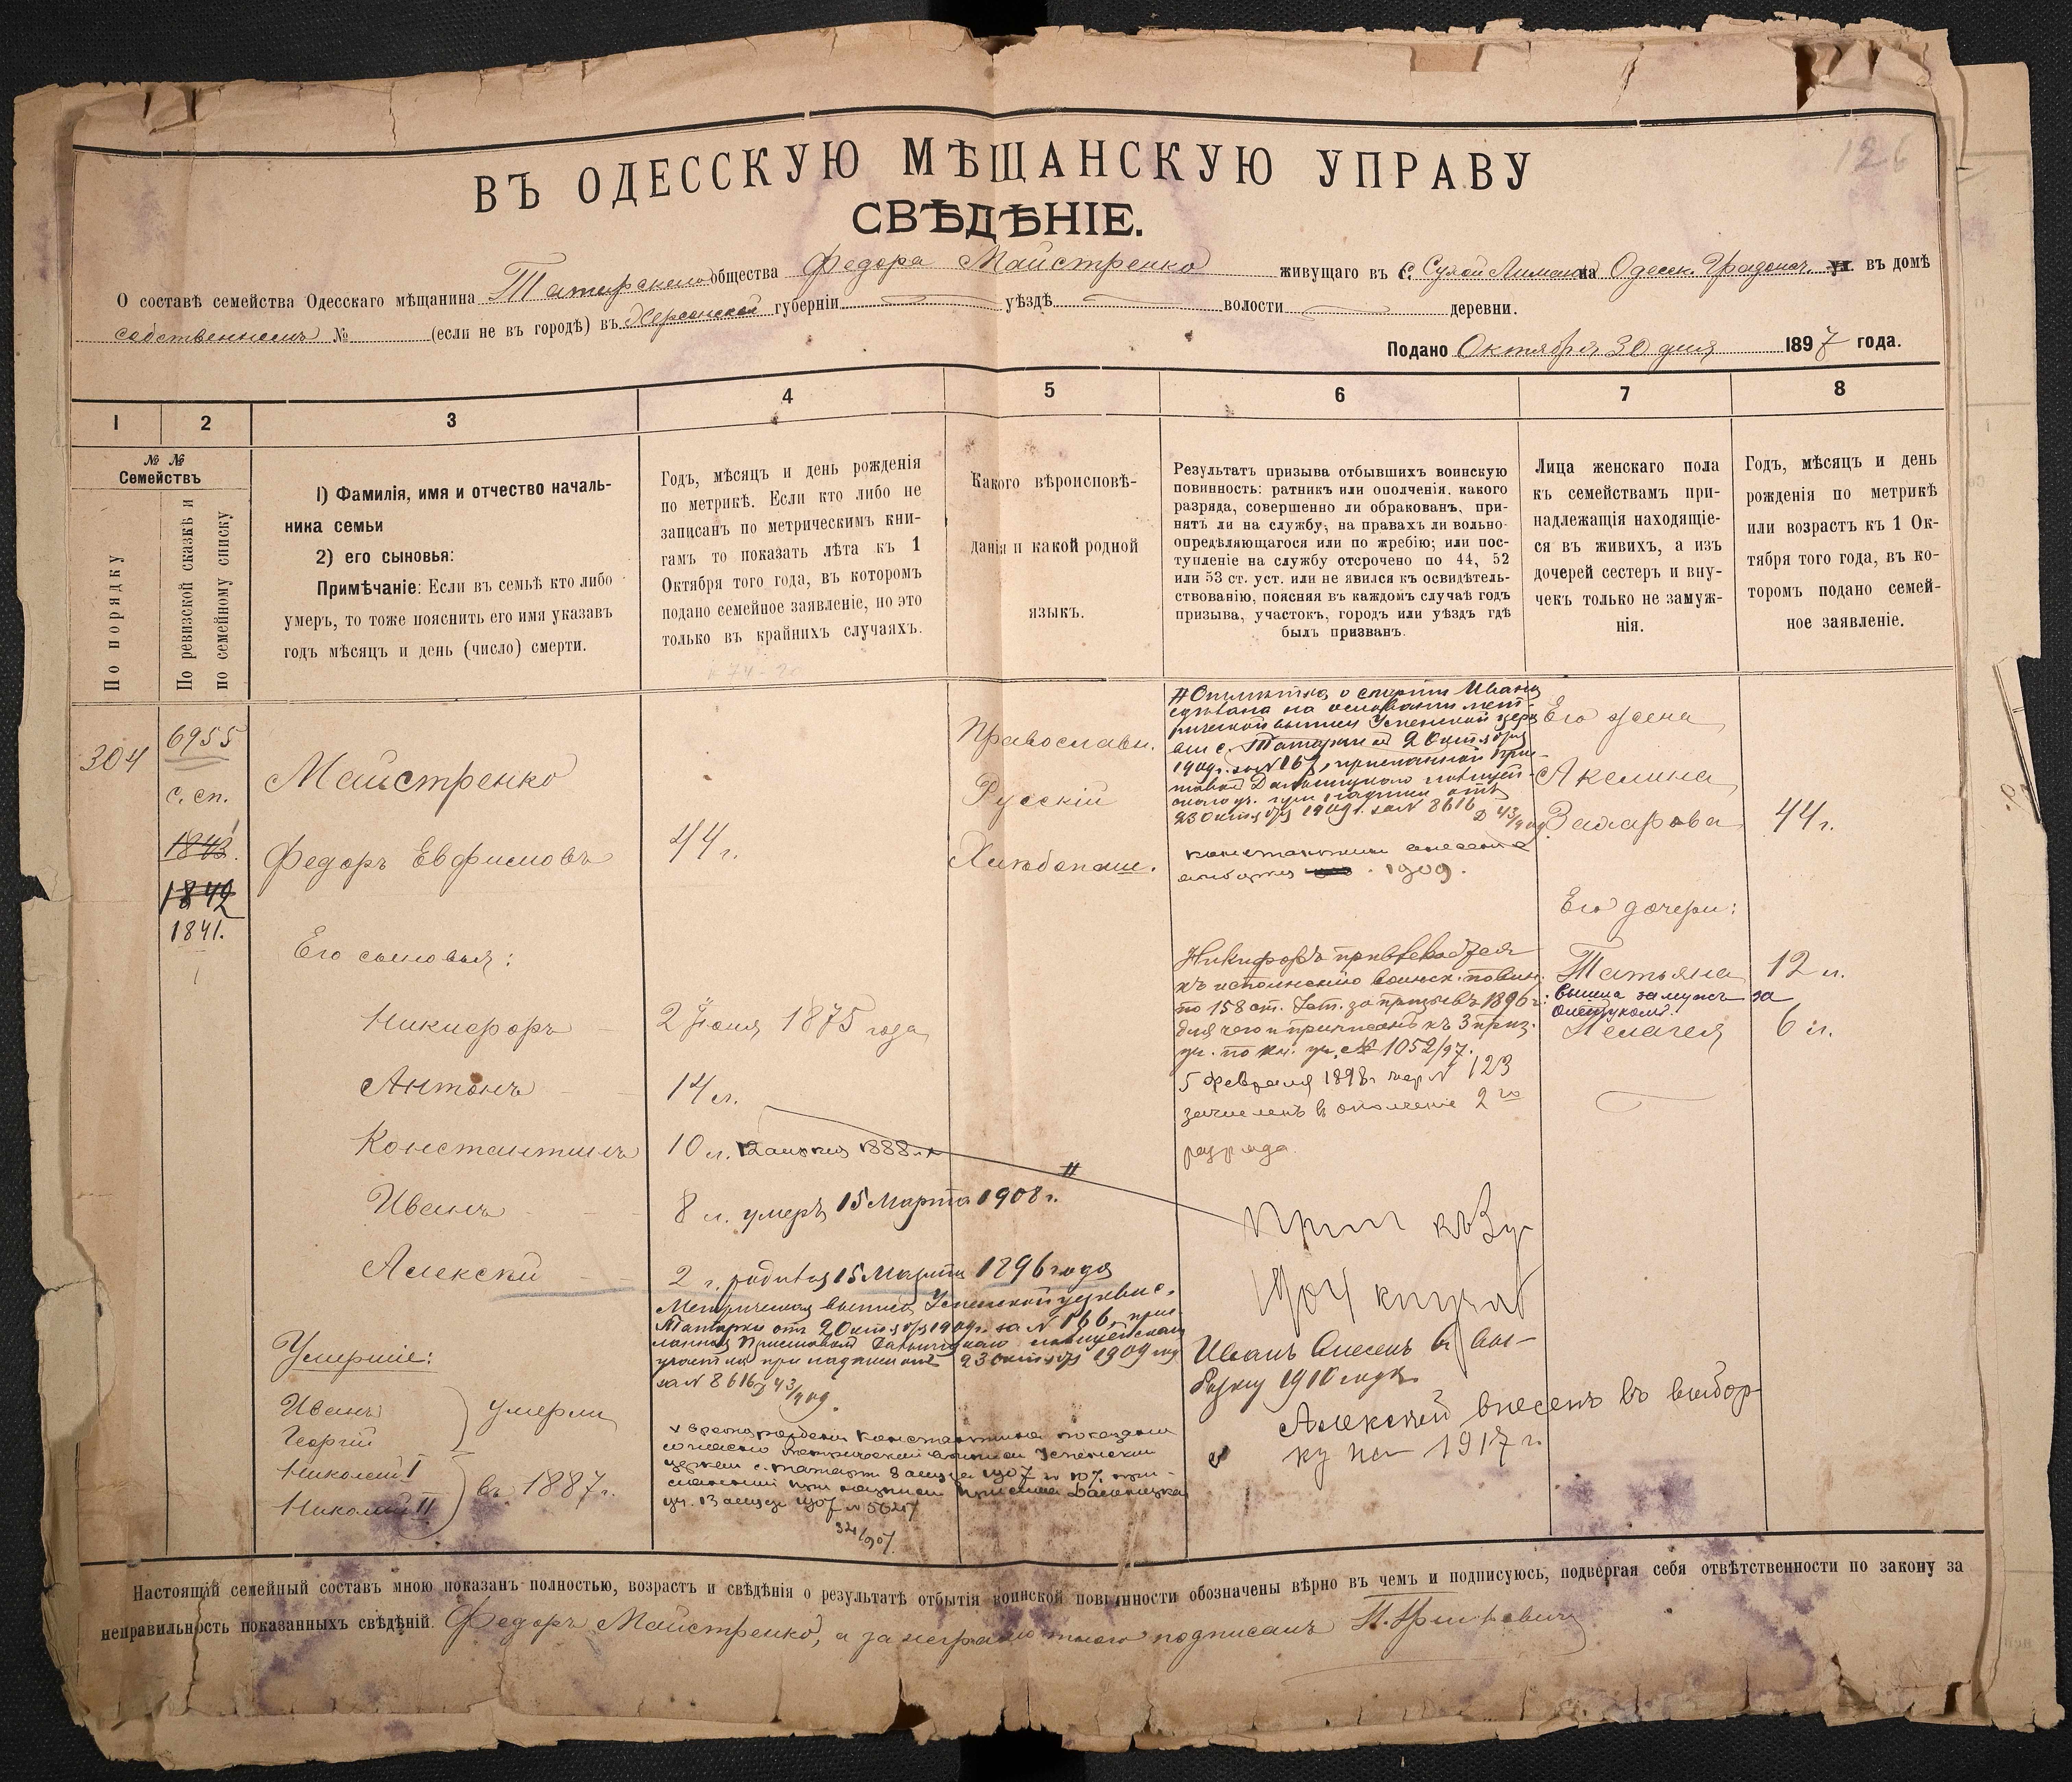 126
ВЪ ОДЕССКУЮ МѢЩАНСКУЮ УПРАВУ
СВѢДѢНІЕ.
О составѣ семейства Одесскаго мѣщанина Татарскаго общества Федора Майстренко живущаго въ с. Сухой Лиманъ на Одесск. Градонач. ~~уѣ.~~ въ домѣ
собственномъ № (если не въ городѣ) въ Херсонской губерніи уѣздѣ волости деревни.
Подано Октября 30 дня 1897 года.
1 2 3 4 5 6 7 8
№ № Семействъ
По порядку
По ревизской сказкѣ и по семейному списку
1) Фамилія, имя и отчество началь-
ника семьи
2) его сыновья:
Примѣчаніе: Если въ семьѣ кто либо
умеръ, то тоже пояснить его имя указавъ
годъ мѣсяцъ и день (число) смерти.
Годъ, мѣсяцъ и день рожденія
по метрикѣ. Если кто либо не
записанъ по метрическимъ кни-
гамъ то показать лѣта къ 1
Октября того года, въ которомъ
подано семейное заявленіе, но это
только въ крайнихъ случаяхъ.
Какого вѣроисповѣ-
данія и какой родной
языкъ.
Результатъ призыва отбывшихъ воинскую
повинность: ратникъ или ополченія. какого
разряда, совершенно ли обракованъ, при-
нятъ ли на службу, на правахъ ли вольно-
опредѣляющагося или по жребію; или пос-
тупленіе на службу отсрочено по 44, 52
или 53 ст. уст. или не явился къ освидѣтель-
ствованію, поясняя въ каждомъ случаѣ годъ
призыва, участокъ, городъ или уѣздъ гдѣ
былъ призванъ.
Лица женскаго пола
къ семействамъ при-
надлежащія находящіе-
ся въ живихъ, а изъ
дочерей сестеръ и вну-
чекъ только не замуж-
нія.
Годъ, мѣсяцъ и день
рожденія по метрикѣ
или возрастъ къ 1 Ок-
тября того года, въ ко-
торомъ подано семей-
ное заявленіе.
304
6955
с. сп.
~~1843.~~
~~1842~~
1841.
Майстренко
Федоръ Евфимовъ
Его сыновья:
Никифоръ
Антонъ
Константинъ
Иванъ
Алексѣй
Умершіе:
Иванъ
Георгій
умерли
Николай I
Николай II
въ 1887 г.
44 г.
2 Іюня 1875 года
14 л.
10 л. 1888 г.
8 л. умеръ 15 Марта 1908 г.
2 г. родился 15 Марта 1896 года
Метрическая выпись Успенской церкви с.
Татарки отъ 20 октября 1909 г. за N 166, прис-
ланная Приставомъ Дальницкаго полицейскаго
участка при надписи отъ 23 октября 1909 год
за N 8616 Д 43/909.
х время рожденія Константина показано
согласно метрической выписи Успенской
церкви с. Татарки 8 1907 N 107, при-
сланной при надписи пристава Дальницкаго
уч. 13 1907 N
Православн.
Русскій
Хлѣбопаш.
# Отмѣтка о смерти Ивана
сдѣлана на основаніи мет-
рической выписи Успенской церк
ви с. Татарки отъ 20 октября
1909 г. за N 167, присланной При-
ставомъ Дальницкаго полицей-
скаго уч. при надписи отъ
23 октября 1909 г. за N 8616 Д 43/909
Константинъ внесенъ въ
выборку 1909.
Никифоръ привлекается
къ исполненію воинск. повин.
по 158 ст. Уст. за призывъ 1896 г.
для чего и приписанъ къ 3 приз.
уч. по кн. уч. № 1052/97.
5 февраля 1898 г N 123
зачисленъ въ ополченіе 2 го
разряда.
Прип къ 3 у
1904 книга
Иванъ внесенъ въ вы-
борку 1910 года
Алексѣй внесенъ въ выбор-
ку на 1917 г.
Его жена
Акелина
Захарова
Его дочери:
Татьяна
вышла замужъ за
Пелагея
44 г.
12 л.
6 л.
Настоящій семейный составъ мною показанъ полностью, возрастъ и свѣдѣнія о результатѣ отбытія воинской повинности обозначены вѣрно въ чемъ и подписуюсь, подвергая себя отвѣтственности по закону за
неправильность показанныхъ свѣдѣній. Федоръ Майстренко, а за неграмотнаго подписалъ